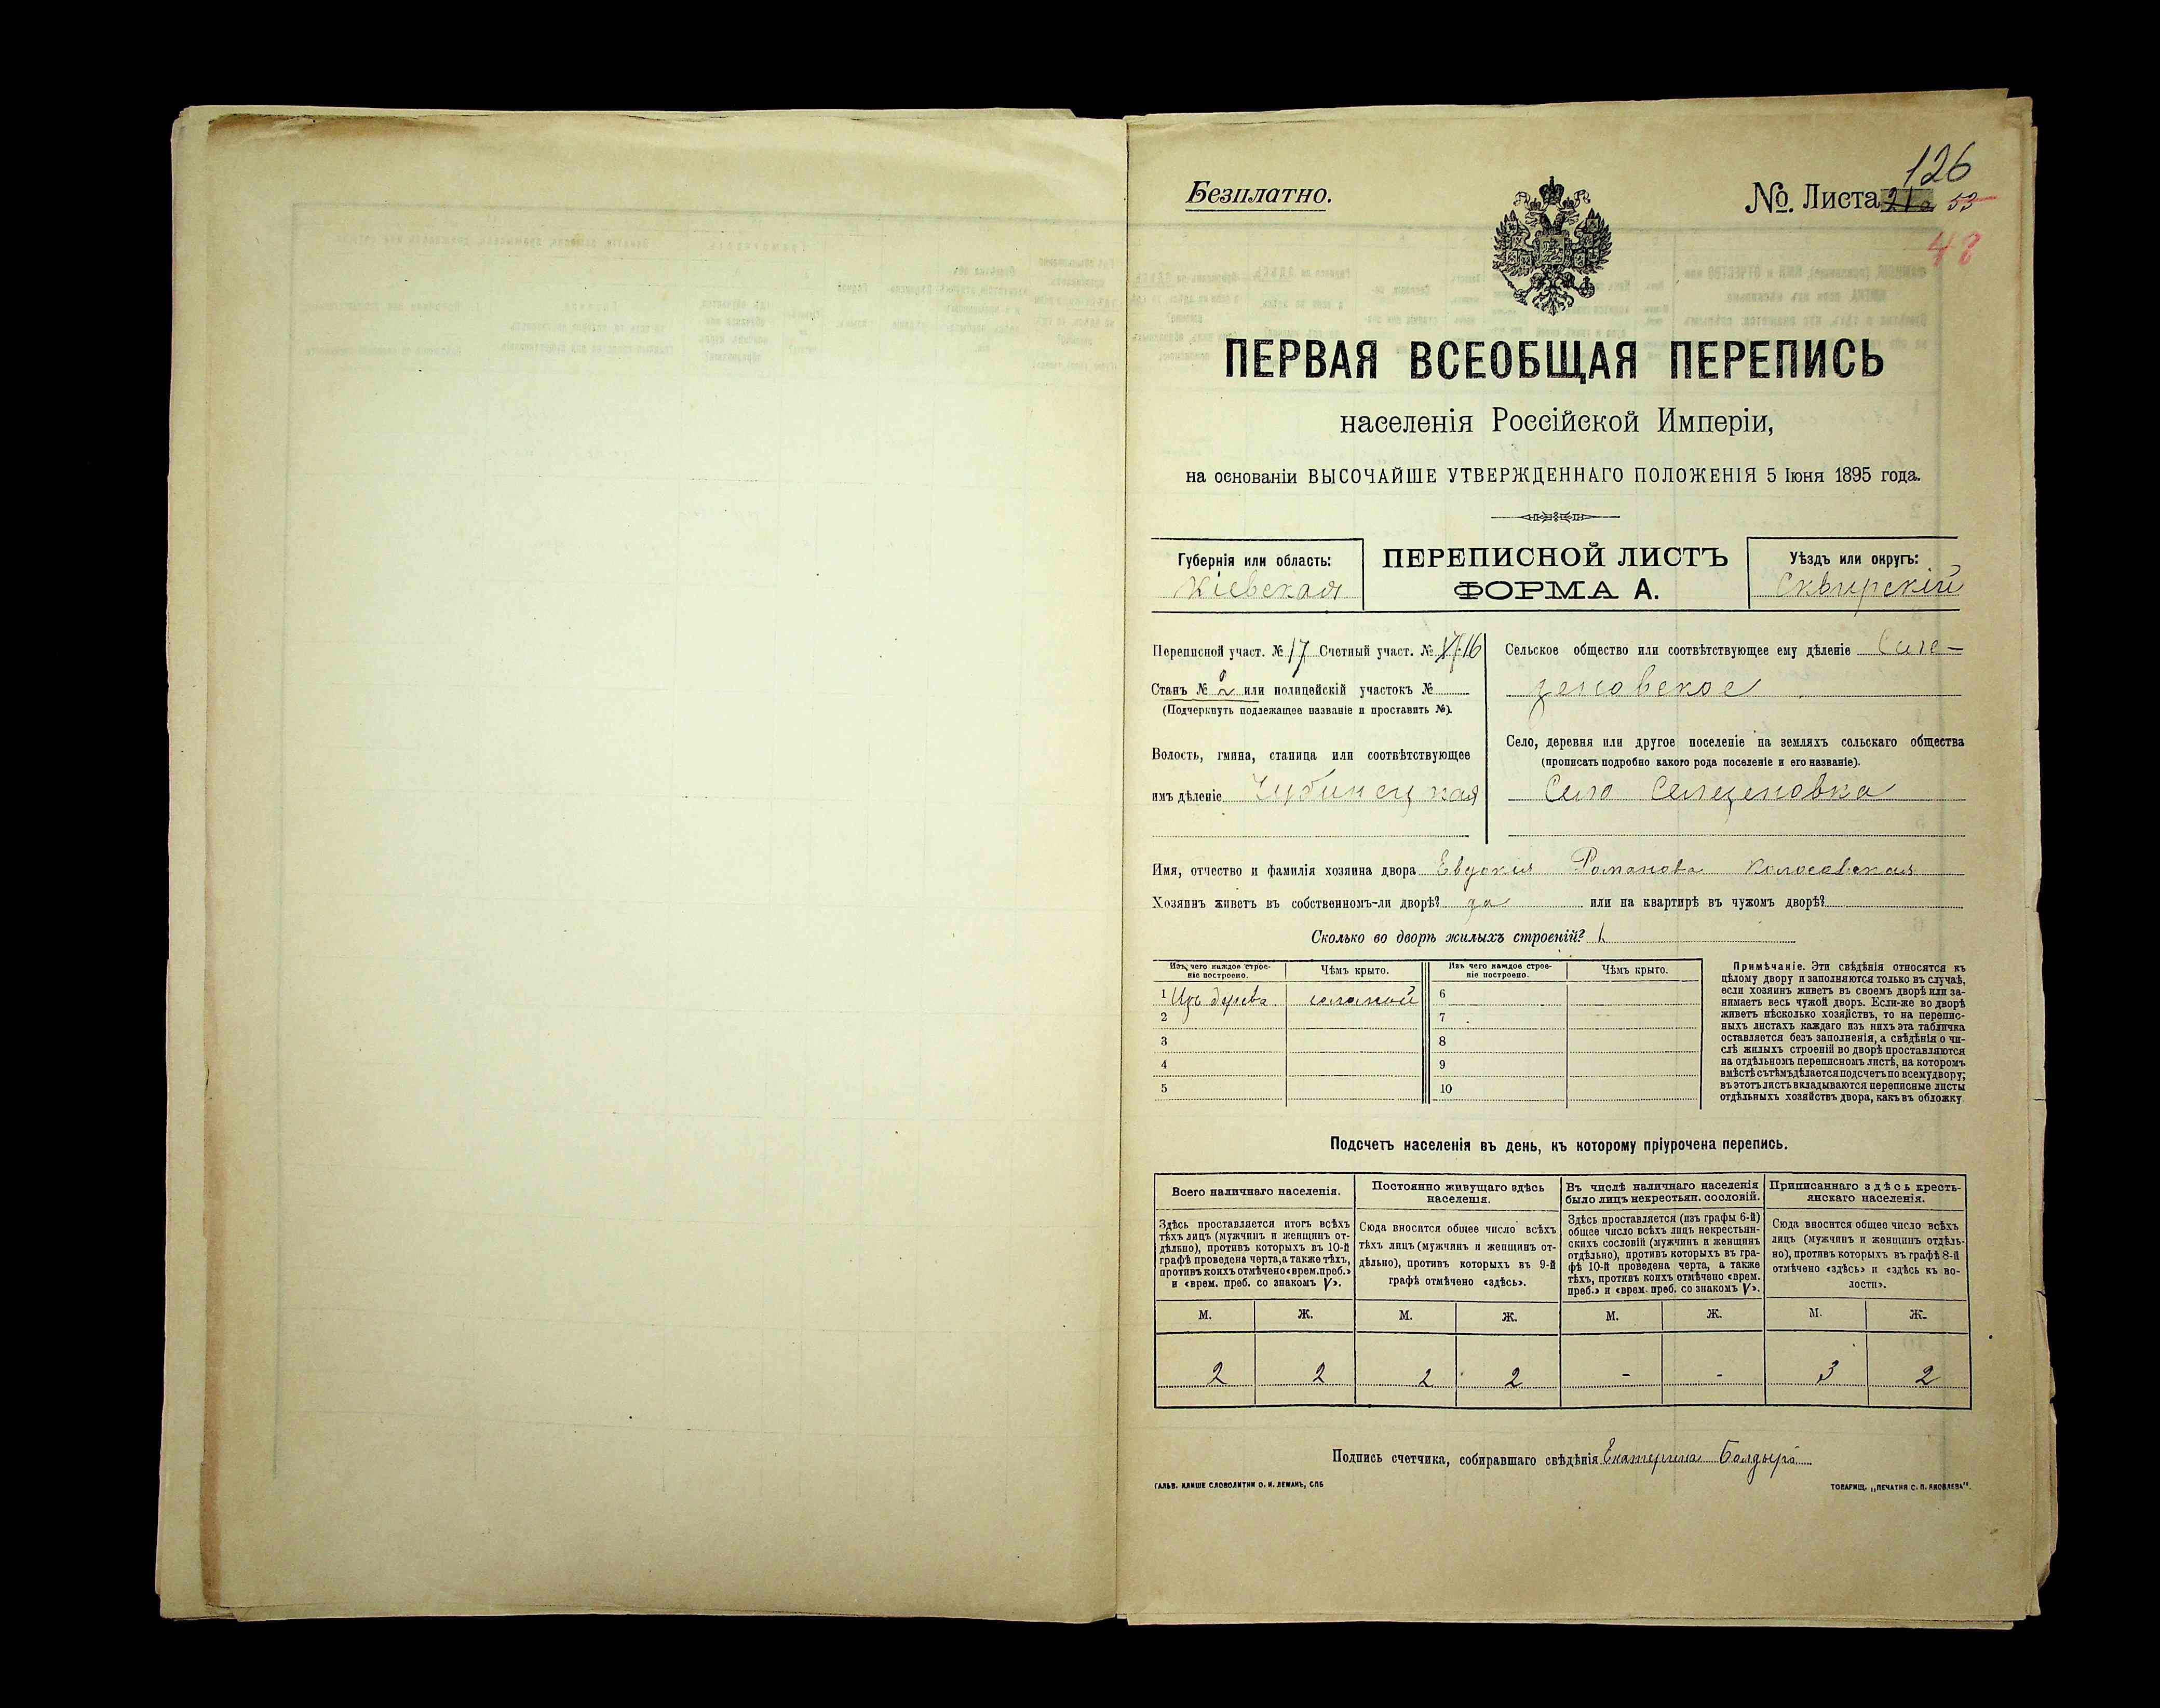 126
Безплатно.
№. Листа 53
48
ПЕРВАЯ ВСЕОБЩАЯ ПЕРЕПИСЬ
населенія Россійской Имперіи,
на основаніи ВЫСОЧАЙШЕ УТВЕРЖДЕННАГО ПОЛОЖЕНІЯ 5 Іюня 1895 года.
Губернія или область:
Кіевская
ПЕРЕПИСНОЙ ЛИСТЪ
ФОРМА А.
Уѣздъ или округъ:
Сквирскій
Переписной участ. № 17 Счетный участ. № 16
Станъ № 2 или полицейскій участокъ №
(Подчеркнуть подлежащее названіе и проставить №).
Волость, гмина, станица или соотвѣтствующее
имъ дѣленіе Чубинецкая
Сельское общество или соотвѣтствующее ему дѣленіе Селе-
зеновское
Село, деревня или другое поселеніе на земляхъ сельскаго общества
(прописать подробно какого рода поселеніе и его названіе).
Село Селезеновка
Имя, отчество и фамилія хозяина двора Евдокия Романова Колосовская
Хозяинъ живетъ въ собственномъ-ли дворѣ? да или на квартирѣ въ чужомъ дворѣ?
Сколько во дворѣ жилыхъ строеній? 1
Изъ чего каждое строе-
ніе построено.
Чѣмъ крыто.
Изъ чего каждое строе-
ніе построено.
Чѣмъ крыто.
1 Изъ дерева соломой 6
2 7
3 8
4 9
5 10
Примѣчаніе. Эти свѣдѣнія относятся къ
цѣлому двору и заполняются только въ случаѣ,
если хозяинъ живетъ въ своемъ дворѣ или за-
нимаетъ весь чужой дворъ. Если-же во дворѣ
живетъ нѣсколько хозяйствъ, то на перепис-
ныхъ листахъ каждаго изъ нихъ эта табличка
оставляется безъ заполненія, а свѣдѣнія о чи-
слѣ жилыхъ строеній во дворѣ проставляются
на отдѣльномъ переписномъ листѣ, на которомъ
вмѣстѣ съ тѣмъ дѣлается подсчетъ по всему двору;
въ этотъ листъ вкладываются переписные листы
отдѣльныхъ хозяйствъ двора, какъ въ обложку
Подсчетъ населенія въ день, къ которому пріурочена перепись.
Всего наличнаго населенія.
Здѣсь проставляется итогъ всѣхъ
тѣхъ лицъ (мужчинъ и женщинъ от-
дѣльно), противъ которыхъ въ 10-й
графѣ проведена черта, а также тѣхъ,
противъ коихъ отмѣчено «врем. преб.»
и «врем. преб. со знакомъ V».
Постоянно живущаго здѣсь
населенія.
Сюда вносится общее число всѣхъ
тѣхъ лицъ (мужчинъ и женщинъ от-
дѣльно), противъ которыхъ въ 9-й
графѣ отмѣчено «здѣсь».
Въ числѣ наличнаго населенія
было лицъ некрестьян. сословій.
Здѣсь проставляется (изъ графы 6-й)
общее число всѣхъ лицъ некрестьян-
скихъ сословій (мужчинъ и женщинъ
отдѣльно), противъ которыхъ въ гра-
фѣ 10-й проведена черта, а также
тѣхъ, противъ коихъ отмѣчено «врем.
преб.» и «врем. преб. со знакомъ V».
Приписаннаго здѣсь кресть-
янскаго населенія.
Сюда вносится общее число всѣхъ
лицъ (мужчинъ и женщинъ отдѣль-
но), противъ которыхъ въ графѣ 8-й
отмѣчено «здѣсь» и «здѣсь къ во-
лости».
М. Ж. М. Ж. М. Ж. М. Ж.
2 2 2 2 - - 3 2
Подпись счетчика, собиравшаго свѣдѣнія Екатерина
ГАЛЬВ. КЛИШЕ СЛОВОЛИТНИ О. И. ЛЕМАНЪ, СПБ
ТОВАРИЩ. „ПЕЧАТНЯ С. П. ЯКОВЛЕВА".